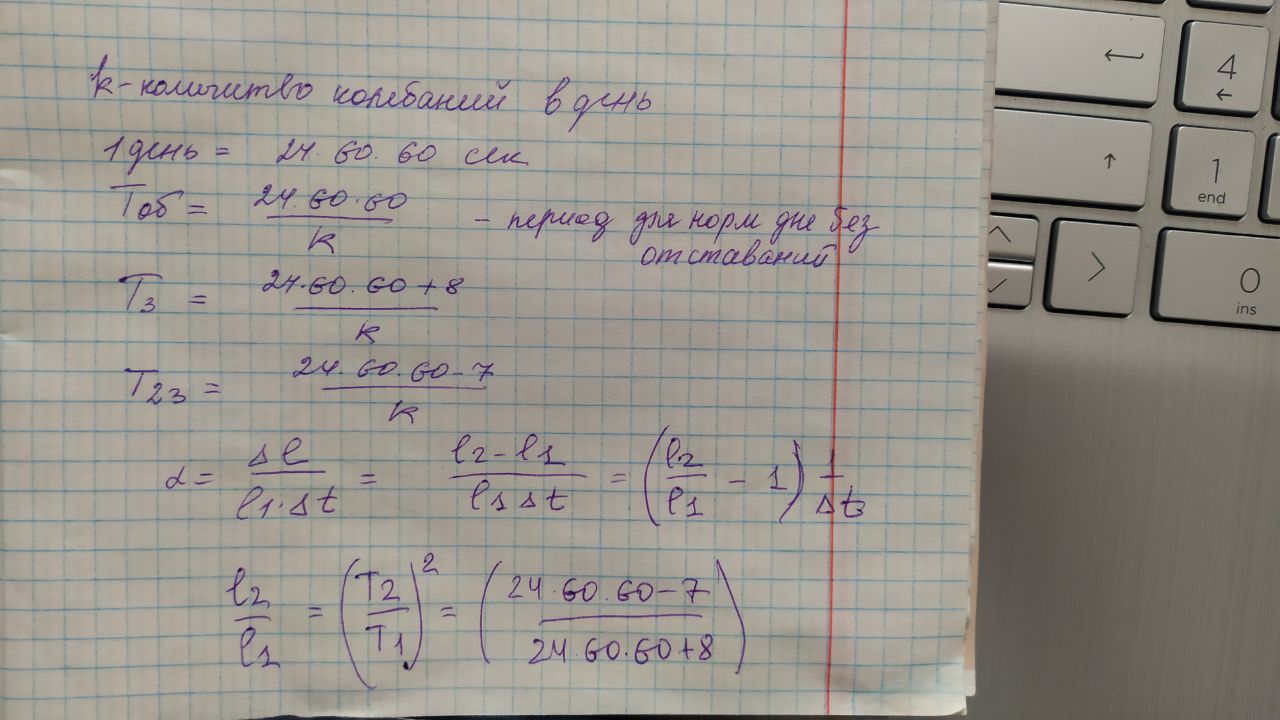 k - количство колебаний в день
1 день = 24. 60. 60 сек
Tоб = 24.60.60 / k - период для норм дне без
отставаний
T3 = 24.60.60+8 / k
T23 = 24.60.60-7 / k
α = Δl / l1·Δt = l2-l1 / l1 Δt = (l2 / l1 - 1) 1 / Δt
l2 / l1 = (T2 / T1)² = (24.60.60-7 / 24.60.60+8)
←
4
←
↑
1
end
0
ins